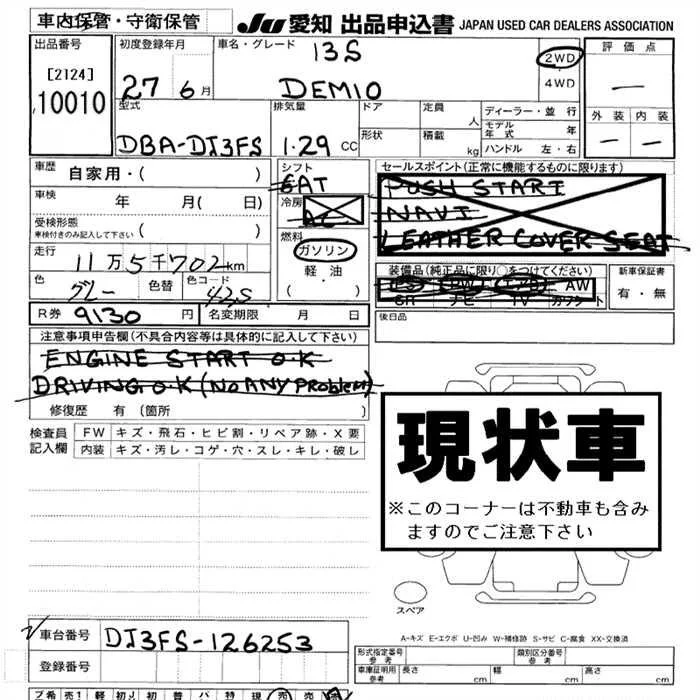 車内保管・守衛保管
JU 愛知 出品申込書 JAPAN USED CAR DEALERS ASSOCIATION
出品番号
[2124]
10010
初度登録年月
27 6月
車名・グレード
13S
DEMIO
2WD
4WD
評価点
—
外装 内装
— —
型式
DBA-DJ3FS
排気量
1.29 CC
ドア
形状
定員 人
積載 kg
ディーラー・並行
モデル年式 年
ハンドル 左・右
車歴 自家用・( )
車検 年 月( 日)
受検形態
車検付きのみ記入して下さい ( )
走行
11万5千702km
色 グレー 色替 色コード 42S
シフト
FAT
冷房
AC
燃料
ガソリン
軽油
( ・ )
セールスポイント(正常に機能するものに限ります)
PUSH START
NAVI
LEATHER COVER SEAT
装備品(純正品に限り○をつけてください)
PS PW エアB AW
SR ナビ TV カワシート
新車保証書
有・無
R券 9130 円 名変期限 月 日
後日品
注意事項申告欄(不具合内容等は具体的に記入して下さい)
ENGINE START O.K
DRIVING O.K (NO ANY PROBLEM)
修復歴 有(箇所 )
検査員記入欄
FW キズ・飛石・ヒビ割・リペア跡・X要
内装 キズ・汚レ・コゲ・穴・スレ・キレ・破レ
現状車
※このコーナーは不動車も含み
ますのでご注意下さい
スペア
A-キズ E-エクボ U-凹み W-補修跡 S-サビ C-腐食 XX-交換済
車台番号 DJ3FS-126253
登録番号
形式指定番号 参考
類別区分番号 参考
車庫証明用 参考 長さ cm 幅 cm 高さ cm